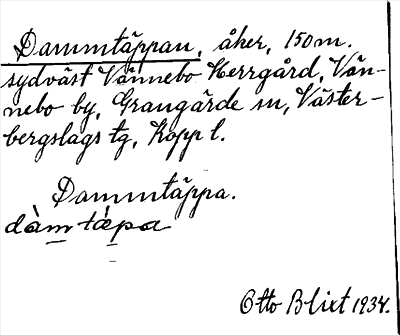 Dammtäppan, åker, 150 m.
sydväst Vännebo Herrgård, Vän-
nebo by, Grangärde sn, Väster-
bergslags tg, Kopp l.
Dammtäppa.
dàmtæpa
Otto Blixt 1934.